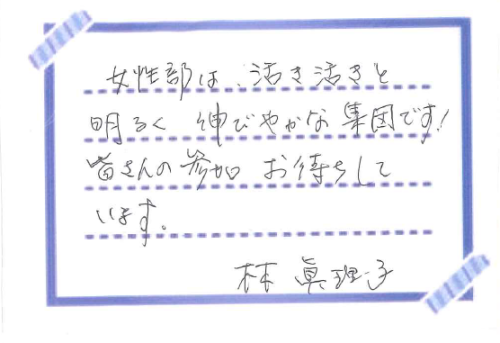 女性部は、活き活きと
明るく 伸びやかな 集団です!
皆さんの参加 お待ちして
います。
林 眞理子